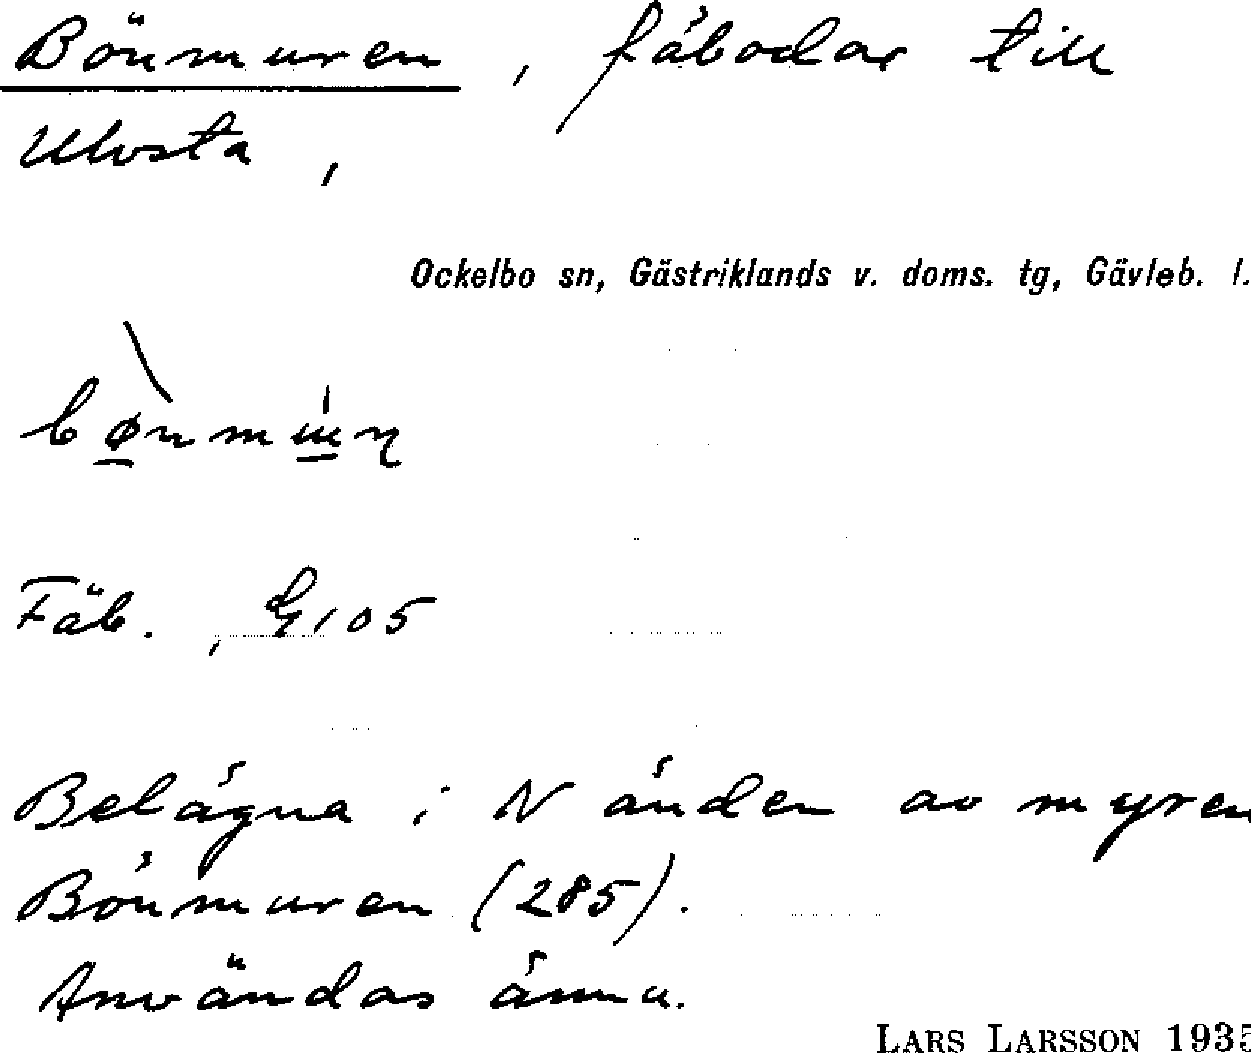 Bönmuren, fäbodar till
Ulvsta,
Ockelbo sn, Gästriklands v. doms. tg, Gävleb. l.
Fäb., G105
Belägna i N änden av myren
Bönmuren (285).
Användas ännu.
LARS LARSSON 1935